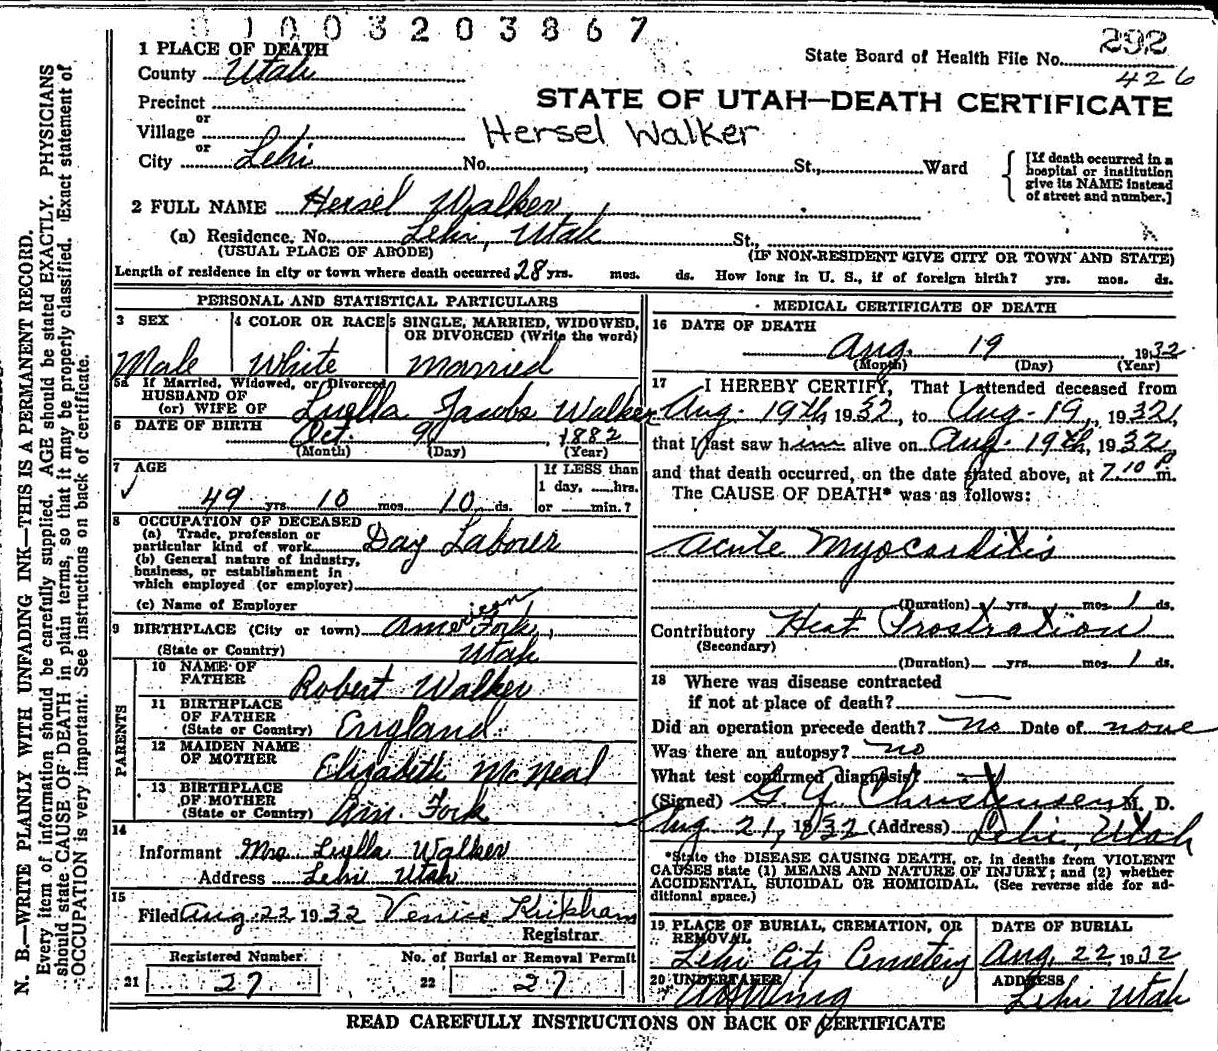 1003203867
1 PLACE OF DEATH
County Utah
State Board of Health File No. 292
426
Precinct
STATE OF UTAH—DEATH CERTIFICATE
or
Village
Hersel Walker
or
City Lehi No. St., Ward
[If death occurred in a
hospital or institution
give its NAME instead
of street and number.]
2 FULL NAME Hersel Walker
(a) Residence. No. Lehi, Utah St.,
(USUAL PLACE OF ABODE) (IF NON-RESIDENT GIVE CITY OR TOWN AND STATE)
Length of residence in city or town where death occurred 28 yrs. mos. ds. How long in U. S., if of foreign birth? yrs. mos. ds.
PERSONAL AND STATISTICAL PARTICULARS
3 SEX 4 COLOR OR RACE 5 SINGLE, MARRIED, WIDOWED,
OR DIVORCED (Write the word)
Male White Married
5a If Married, Widowed, or Divorced
HUSBAND OF
(or) WIFE OF Luella Jacobs Walker
6 DATE OF BIRTH Oct. 9 1882
(Month) (Day) (Year)
7 AGE
If LESS than
1 day, hrs.
49 yrs 10 mos. 10 ds. or min.?
8 OCCUPATION OF DECEASED
(a) Trade, profession or
particular kind of work Day Laborer
(b) General nature of industry,
business, or establishment in
which employed (or employer)
(c) Name of Employer
9 BIRTHPLACE (City or town) American Fork,
(State or Country) Utah
PARENTS
10 NAME OF
FATHER Robert Walker
11 BIRTHPLACE
OF FATHER
(State or Country) England
12 MAIDEN NAME
OF MOTHER Elizabeth McNeal
13 BIRTHPLACE
OF MOTHER
(State or Country) Am. Fork
14
Informant Mrs Luella Walker
Address Lehi Utah
15
Filed Aug 22 1932 Venice
Registrar.
Registered Number. No. of Burial or Removal Permit
21 27 22 27
MEDICAL CERTIFICATE OF DEATH
16 DATE OF DEATH
Aug. 19 1932
(Month) (Day) (Year)
17 I HEREBY CERTIFY, That I attended deceased from
Aug. 19th, 1932, to Aug. 19, 1932,
that I last saw him alive on Aug. 19th, 1932
and that death occurred, on the date stated above, at 7.10 P m.
The CAUSE OF DEATH* was as follows:
Acute Myocarditis
(Duration) yrs. mos. 1 ds.
Contributory Heat Prostration
(Secondary)
(Duration) yrs. mos. 1 ds.
18 Where was disease contracted
if not at place of death?
Did an operation precede death? No Date of none
Was there an autopsy? no
What test confirmed diagnosis?
(Signed) G Y Christensen M. D.
Aug 21, 1932 (Address) Lehi, Utah
*State the DISEASE CAUSING DEATH, or, in deaths from VIOLENT
CAUSES state (1) MEANS AND NATURE OF INJURY; and (2) whether
ACCIDENTAL, SUICIDAL OR HOMICIDAL. (See reverse side for ad-
ditional space.)
19 PLACE OF BURIAL, CREMATION, OR
REMOVAL
Lehi City Cemetery
DATE OF BURIAL
Aug, 22, 1932
20 UNDERTAKER
ADDRESS
Lehi Utah
READ CAREFULLY INSTRUCTIONS ON BACK OF CERTIFICATE
N. B.—WRITE PLAINLY WITH UNFADING INK—THIS IS A PERMANENT RECORD.
Every item of information should be carefully supplied. AGE should be stated EXACTLY. PHYSICIANS
should state CAUSE OF DEATH in plain terms, so that it may be properly classified. Exact statement of
OCCUPATION is very important. See instructions on back of certificate.